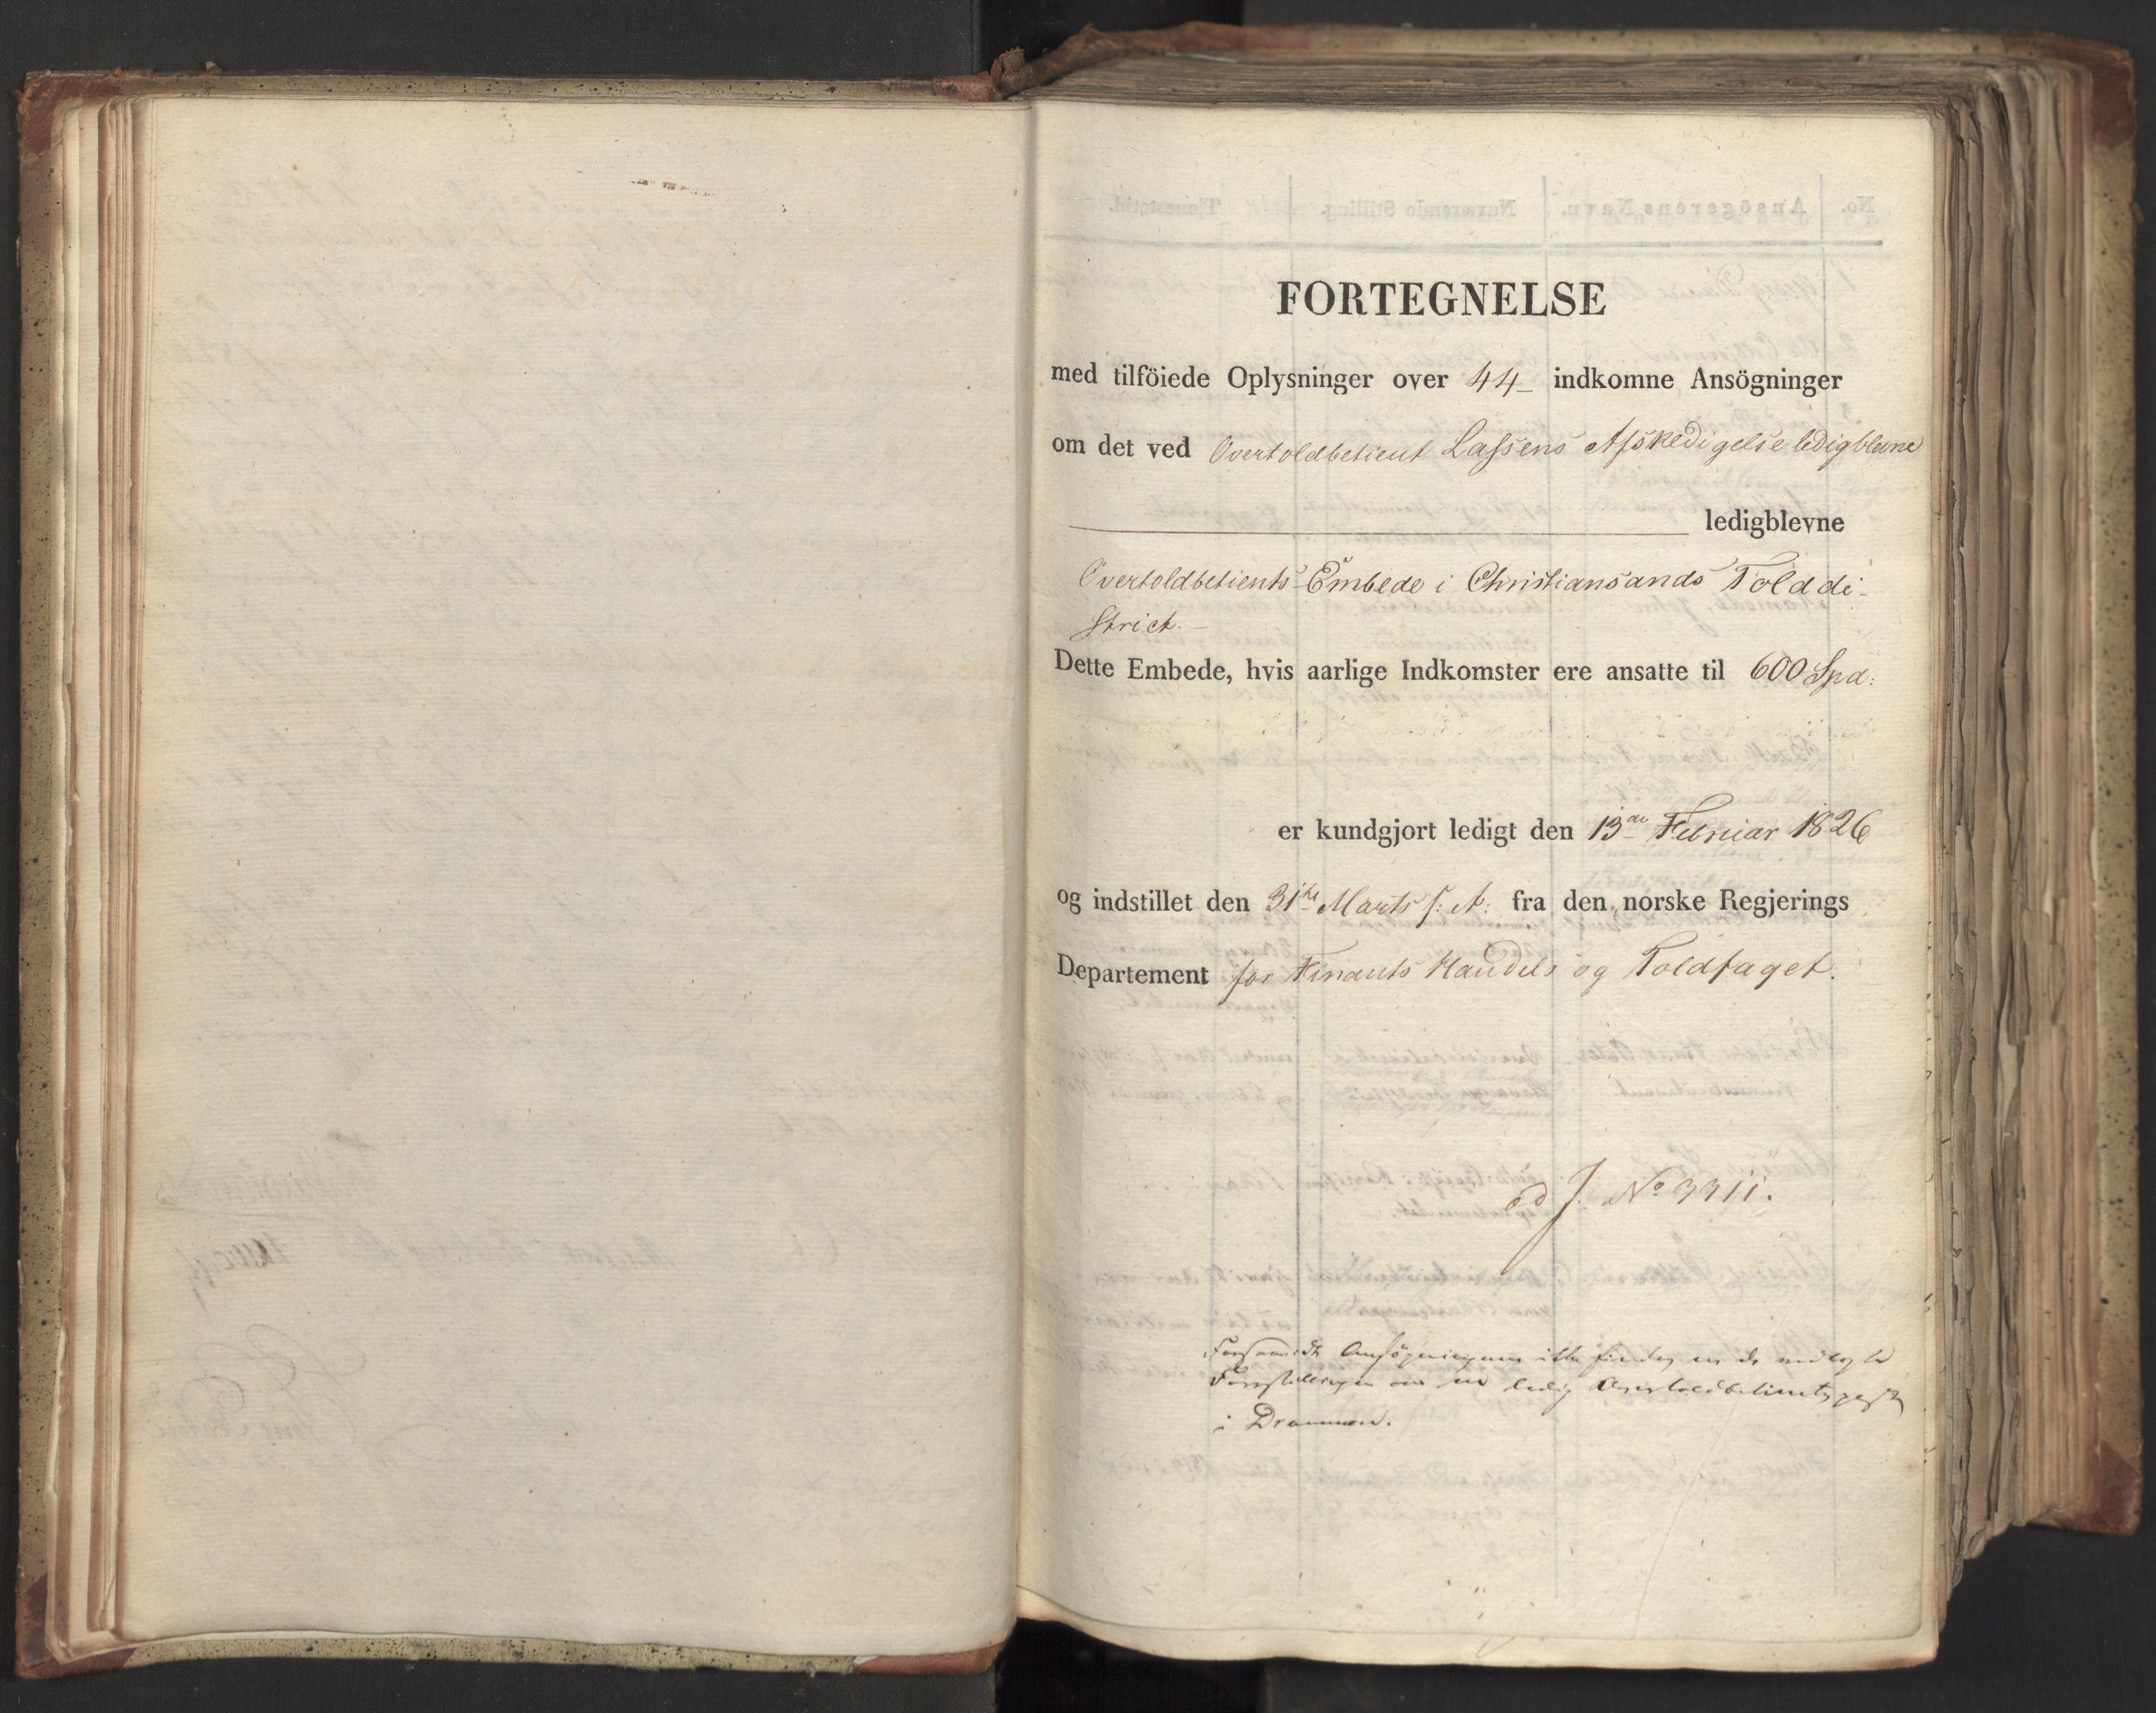 FORTEGNELSE
med tilföiede Oplysninger over 44 indkomne Ansögninger
om det ved Overtoldbetient Lassens Afskedigelse ledigblevne
ledigblevne
Overtoldbetients-Embede i Christiansands Tolddi-
strict.
Dette Embede, hvis aarlige Indkomster ere ansatte til 600 Spd:
er kundgjort ledigt den 13de Februar 1826
og indstillet den 31te Marts s: A: fra den norske Regjerings
Departement for Finants Handels og Toldfaget.
ad J. No 3311.
Forsaavidt Ansögningerne ikke findes er de vedlagte
Forestillingen om en ledig Overtoldbetientspost
i Drammen.